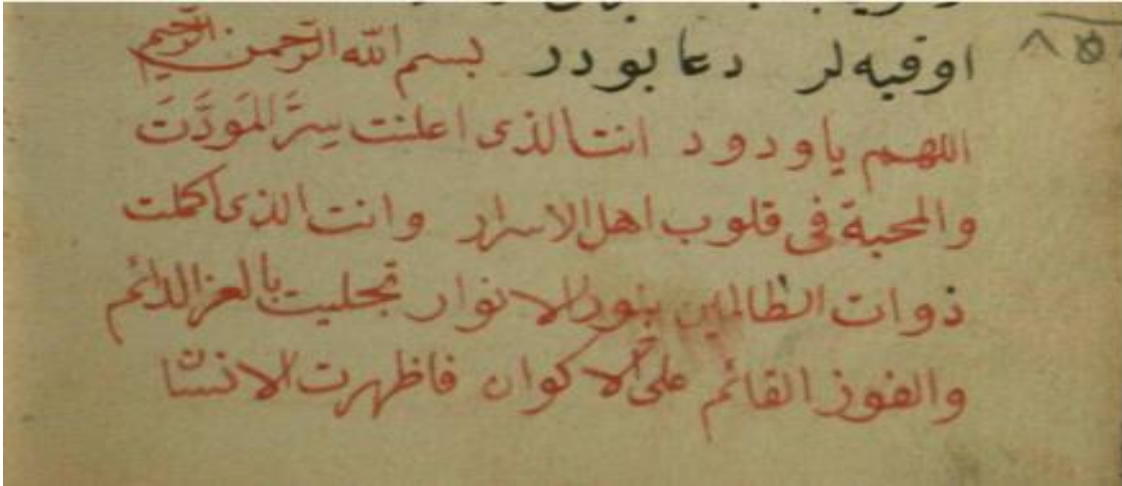 اوقيه لر دعا بودر بسم الله الرحمن الرحيم
اللهم يا ودود انت الذى اعلنت سِرَّ المَوَدَّتَ
والمحبة فى قلوب اهل الاسرار وانت الذى اكملت
ذوات الطالبين بنور الانوار تجليت بالعز الدائم
والفوز القائم على الاكوان فاظهرت الانشا